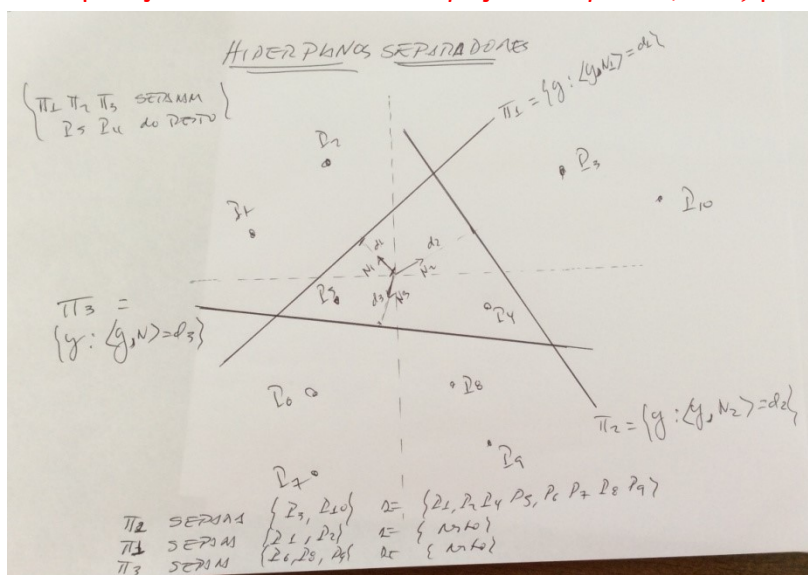 HIPERPLANOS SEPARADORES
Π1 Π2 Π3 SEPARAN
P5 P4 do RESTO
Π1 = {y: <y,N1>=d1}
P2
P3
P1
P10
d1
d2
N1
N2
P5
d3
N3
P4
Π3 =
{y: <y,N>=d3}
P6
P8
Π2 = {y: <y,N2>=d2}
P9
P7
Π2 SEPARA {P3, P10} DE {P1, P2 P4 P5, P6 P7 P8 P9}
Π1 SEPARA {P1, P2} DE { resto}
Π3 SEPARA {P6, P8, P9} DE { resto}